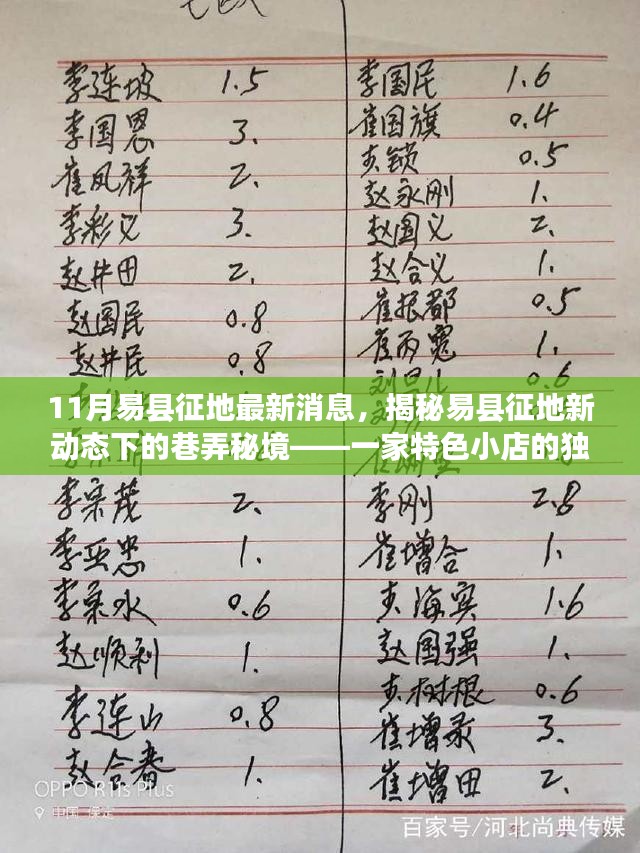 李连坡 1.5
李国恩 3.
崔凤祥 2.
李彩义 3.
赵井田 2.
赵国民 0.8
赵井民 0.8
李国民 1.6
崔国旗 0.4
0.5
赵永刚 1.
赵国义 2.
赵合义 1.
崔振都 0.5
1.
0.6
11月易县征地最新消息，揭秘易县征地新
动态下的巷弄秘境——一家特色小店的独
李荣茂 2.
李亚忠 1.
李荣水 0.6
赵顺利 1.
李连山 0.8
赵合春 1.
李刚 2.8
崔增合 1.
1.6
赵国强 1.
0.6
崔增录 3.
崔增田 2.
OPPO R11s Plus
中国·保定
百家号/河北尚典传媒